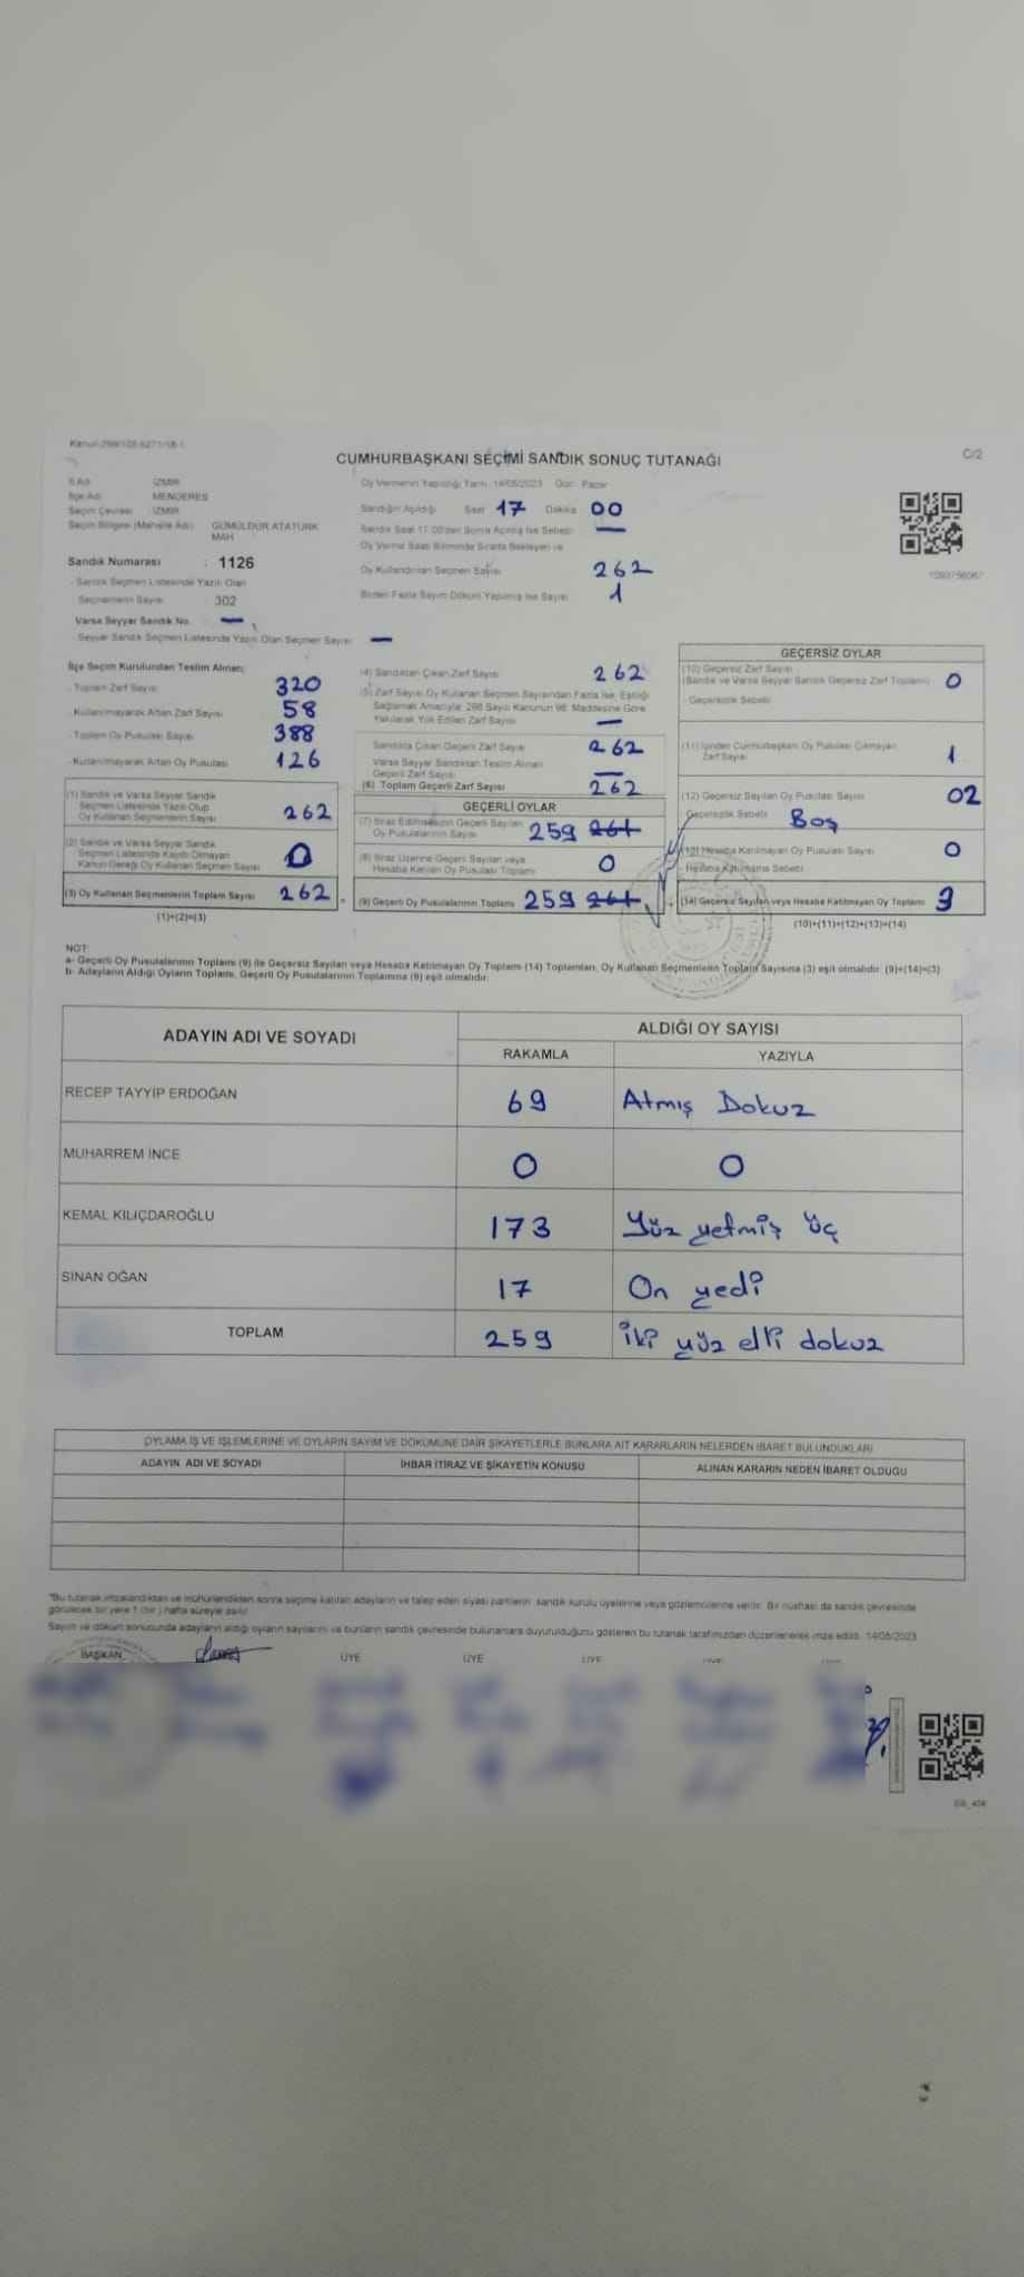 Kanun:298/105-6271/18-1
CUMHURBAŞKANI SEÇİMİ SANDIK SONUÇ TUTANAĞI
C/2
İl Adı İZMİR
İlçe Adı MENDERES
Seçim Çevresi İZMİR
Seçim Bölgesi (Mahalle Adı) GÜMÜLDÜR ATATÜRK MAH
Sandık Numarası : 1126
Sandık Seçmen Listesinde Yazılı Olan
Seçmenlerin Sayısı 302
Varsa Seyyar Sandık No. —
Seyyar Sandık Seçmen Listesinde Yazılı Olan Seçmen Sayısı —
Oy Vermenin Yapıldığı Tarih: 14/05/2023 Gün: Pazar
Sandığın Açıldığı Saat 17 Dakika 00
Sandık Saat 17.00'den Sonra Açılmış İse Sebebi —
Oy Verme Saati Bitiminde Sırada Bekleyen ve
Oy Kullandırılan Seçmen Sayısı 262
Birden Fazla Sayım Döküm Yapılmış İse Sayısı 1
İlçe Seçim Kurulundan Teslim Alınan;
- Toplam Zarf Sayısı 320
- Kullanılmayarak Artan Zarf Sayısı 58
- Toplam Oy Pusulası Sayısı 388
- Kullanılmayarak Artan Oy Pusulası 126
(1) Sandık ve Varsa Seyyar Sandık
Seçmen Listesinde Yazılı Olup
Oy Kullanan Seçmenlerin Sayısı 262
(2) Sandık ve Varsa Seyyar Sandık
Seçmen Listesinde Kayıtlı Olmayan
Kanun Gereği Oy Kullanan Seçmen Sayısı 0
(3) Oy Kullanan Seçmenlerin Toplam Sayısı 262
(1)+(2)=(3)
(4) Sandıktan Çıkan Zarf Sayısı 262
(5) Zarf Sayısı Oy Kullanan Seçmen Sayısından Fazla İse, Eşitliği
Sağlamak Amacıyla; 298 Sayılı Kanunun 98. Maddesine Göre
Yakılarak Yok Edilen Zarf Sayısı —
Sandıkta Çıkan Geçerli Zarf Sayısı 262
Varsa Seyyar Sandıktan Teslim Alınan
Geçerli Zarf Sayısı —
(6) Toplam Geçerli Zarf Sayısı 262
GEÇERLİ OYLAR
(7) İtiraz Edilmeksizin Geçerli Sayılan
Oy Pusulalarının Sayısı 259 261
(8) İtiraz Üzerine Geçerli Sayılan veya
Hesaba Katılan Oy Pusulası Toplamı 0
(9) Geçerli Oy Pusulalarının Toplamı 259 261
GEÇERSİZ OYLAR
(10) Geçersiz Zarf Sayısı
(Sandık ve Varsa Seyyar Sandık Geçersiz Zarf Toplamı) 0
- Geçersizlik Sebebi
(11) İçinden Cumhurbaşkanı Oy Pusulası Çıkmayan
Zarf Sayısı 1
(12) Geçersiz Sayılan Oy Pusulası Sayısı 02
Geçersizlik Sebebi Boş
(13) Hesaba Katılmayan Oy Pusulası Sayısı 0
- Hesaba Katılmama Sebebi
(14) Geçersiz Sayılan veya Hesaba Katılmayan Oy Toplamı 3
(10)+(11)+(12)+(13)=(14)
NOT:
a- Geçerli Oy Pusulalarının Toplamı (9) ile Geçersiz Sayılan veya Hesaba Katılmayan Oy Toplamı (14) Toplamları, Oy Kullanan Seçmenlerin Toplam Sayısına (3) eşit olmalıdır. (9)+(14)=(3)
b- Adayların Aldığı Oyların Toplamı, Geçerli Oy Pusulalarının Toplamına (9) eşit olmalıdır.
ADAYIN ADI VE SOYADI
ALDIĞI OY SAYISI
RAKAMLA YAZIYLA
RECEP TAYYİP ERDOĞAN 69 Atmış Dokuz
MUHARREM İNCE 0 0
KEMAL KILIÇDAROĞLU 173 Yüz yetmiş üç
SİNAN OĞAN 17 On yedi
TOPLAM 259 iki yüz elli dokuz
OYLAMA İŞ VE İŞLEMLERİNE VE OYLARIN SAYIM VE DÖKÜMÜNE DAİR ŞİKAYETLERLE BUNLARA AİT KARARLARIN NELERDEN İBARET BULUNDUKLARI
ADAYIN ADI VE SOYADI İHBAR İTİRAZ VE ŞİKAYETİN KONUSU ALINAN KARARIN NEDEN İBARET OLDUĞU
*Bu tutanak imzalandıktan ve mühürlendikten sonra seçime katılan adayların ve talep eden siyasi partilerin sandık kurulu üyelerine veya gözlemcilerine verilir. Bir nüshası da sandık çevresinde
görülecek bir yere 1 (bir) hafta süreyle asılır.
Sayım ve döküm sonucunda adayların aldığı oyların sayılarını ve bunların sandık çevresinde bulunanlara duyurulduğunu gösteren bu tutanak tarafımızdan düzenlenerek imza edildi. 14/05/2023
BAŞKAN ÜYE ÜYE ÜYE